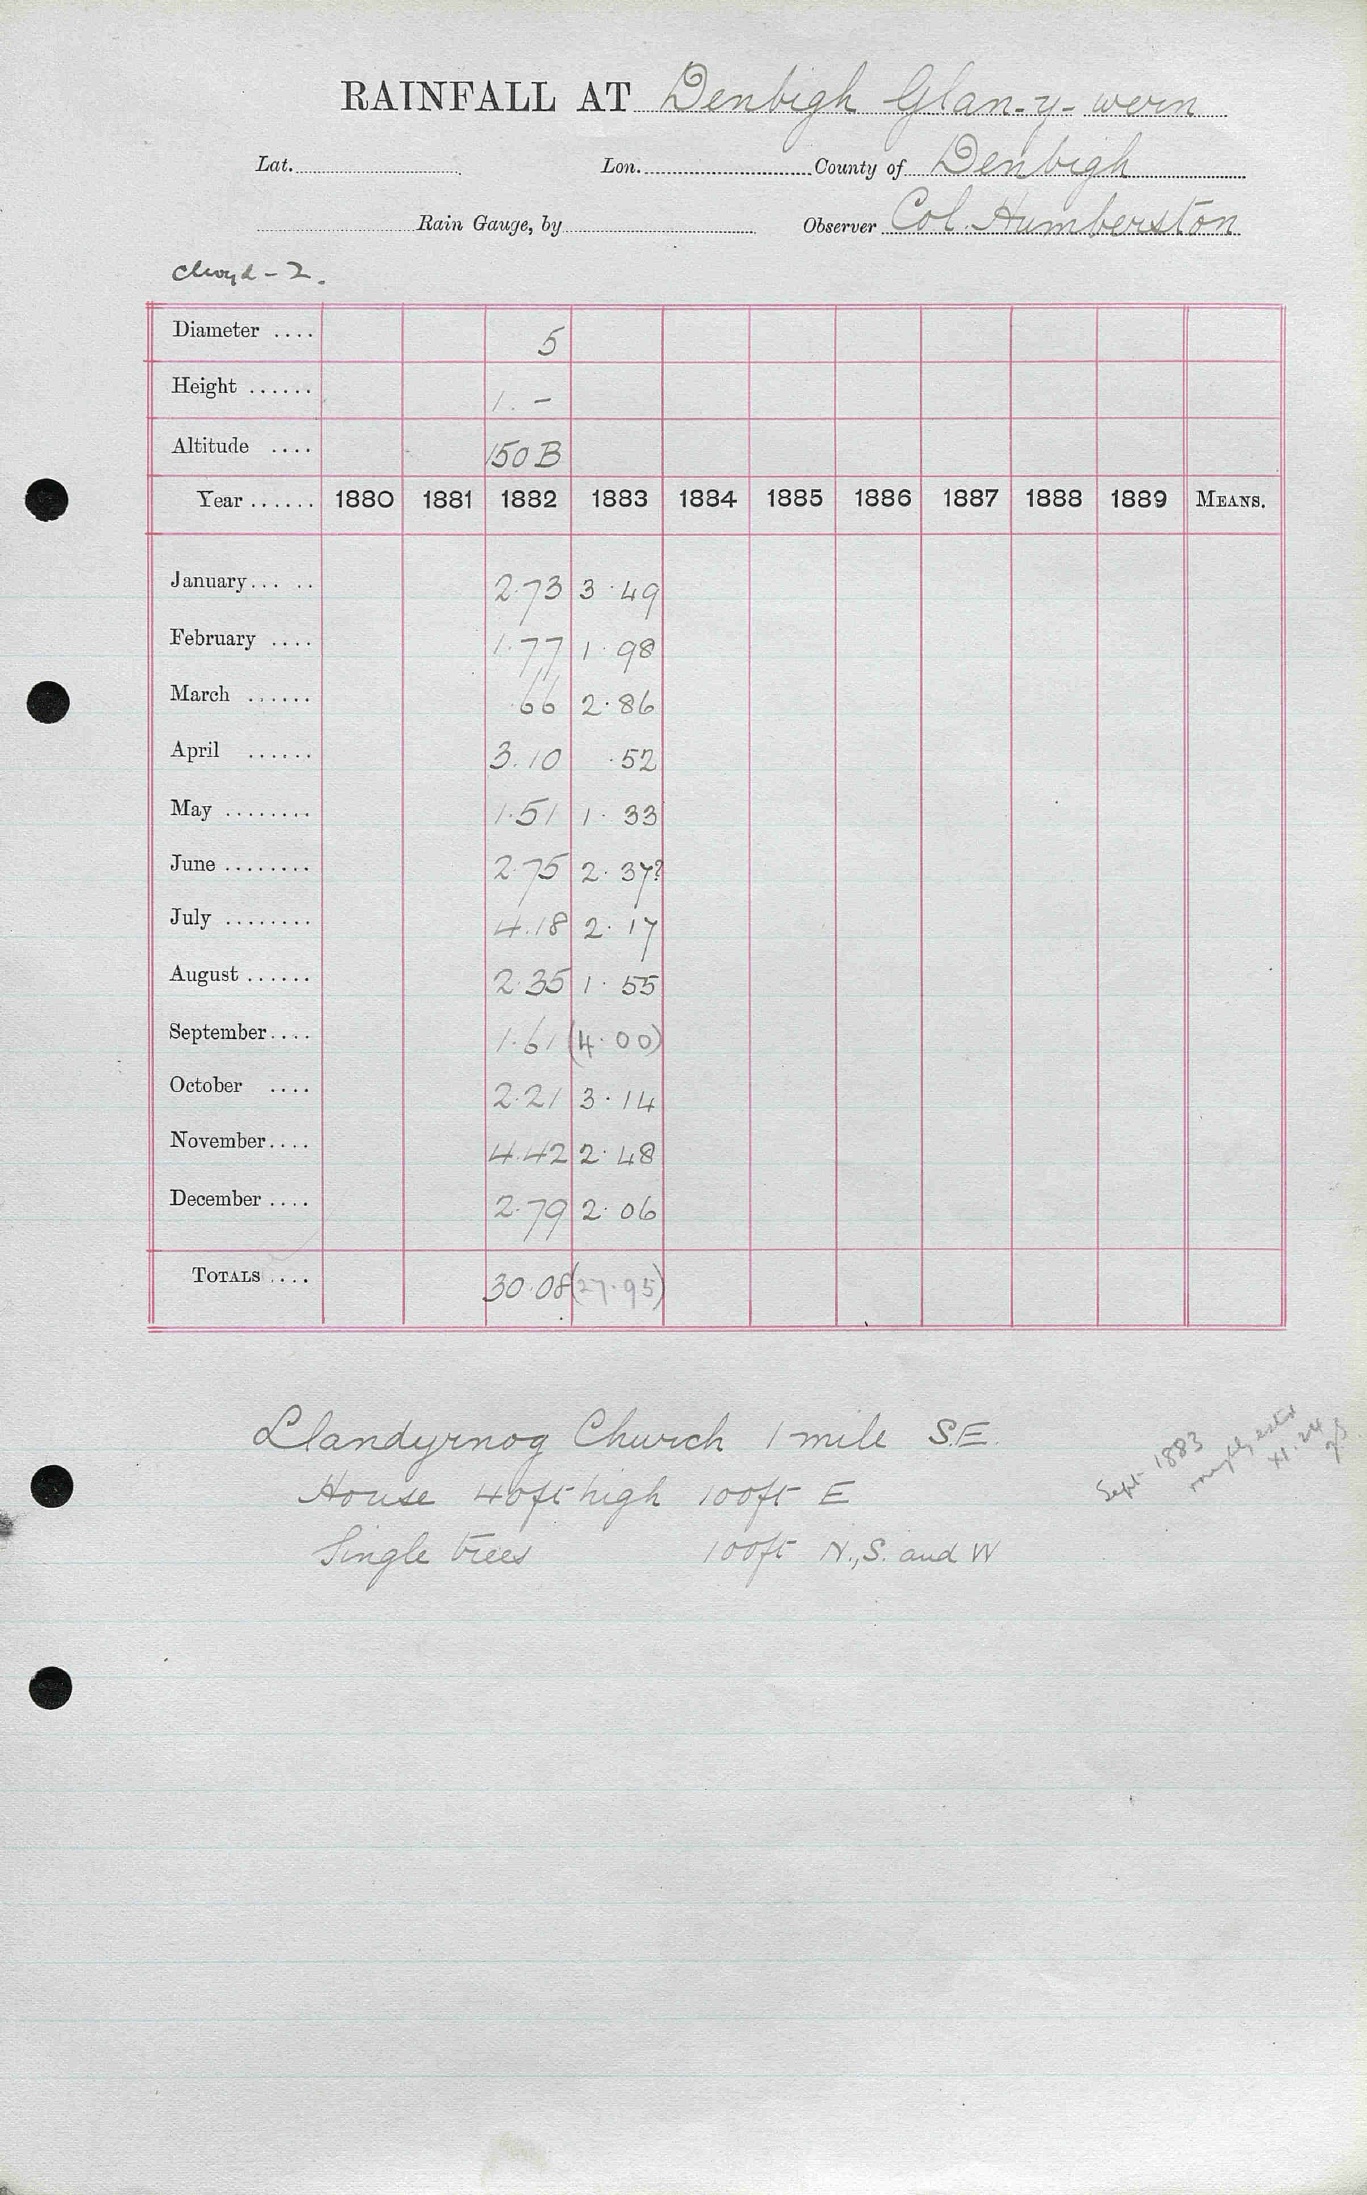 RAINFALL AT Denbigh Glan-y-wern
Lat. Lon. County of Denbigh
Rain Gauge, by Observer Col. Humberston
Clwyd - 2.
Diameter .... 5
Height ...... 1. -
Altitude .... 150 B
Year ...... 1880 1881 1882 1883 1884 1885 1886 1887 1888 1889 MEANS.
January... .. 2.73 3.49
February .... 1.77 1.98
March ...... .66 2.86
April ...... 3.10 .52
May ........ 1.51 1.33
June ........ 2.75 2.37?
July ........ 4.18 2.17
August ...... 2.35 1.55
September.... 1.61 (4.00)
October .... 2.21 3.14
November.... 4.42 2.48
December .... 2.79 2.06
TOTALS .... 30.08 (27.95)
Llandyrnog Church 1 mile S.E.
House 40ft high 100ft E
Single trees 100ft N., S. and W
Sept 1883
roughly estd
XI.24